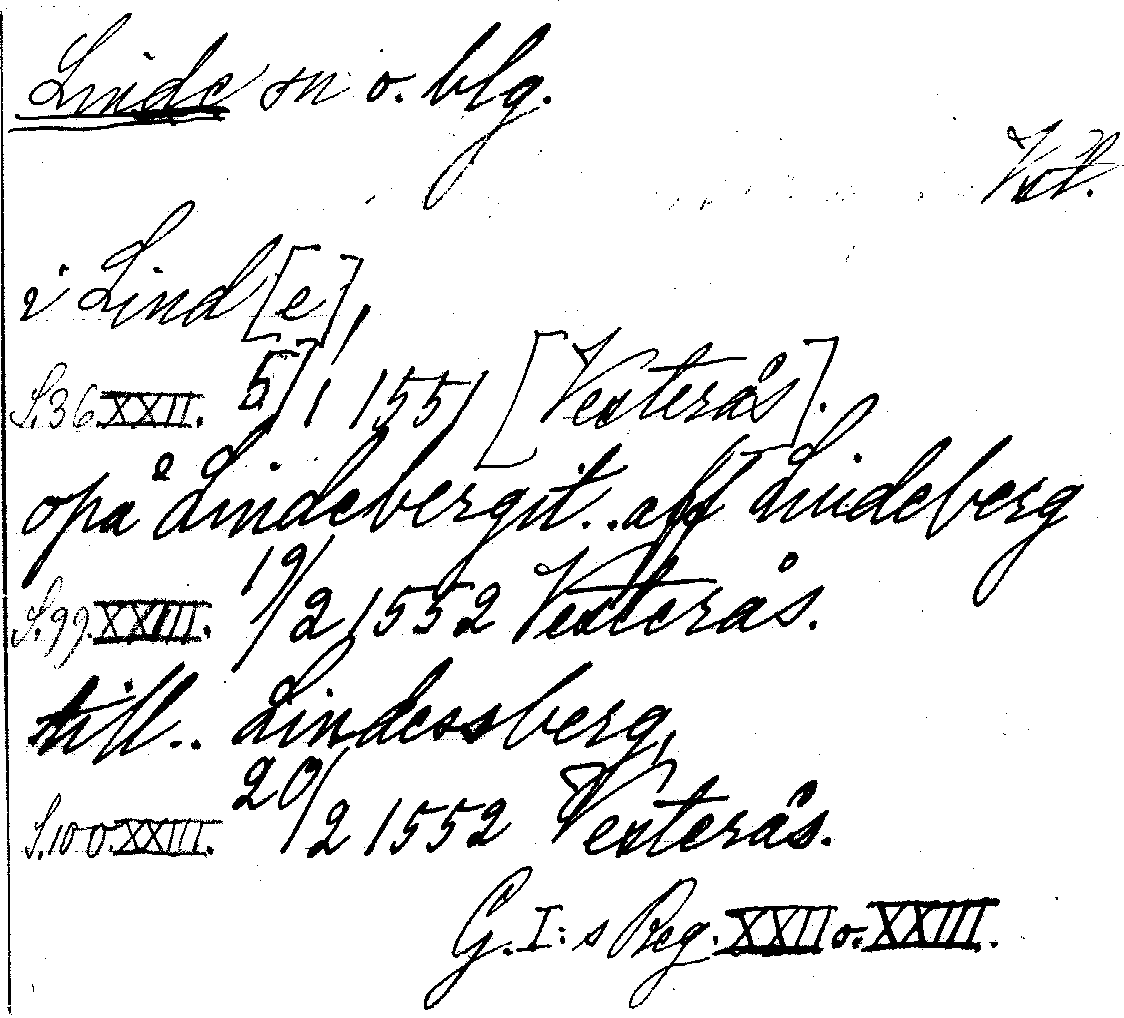 Linde sn o. blg.
Vstl.
i Lind[e],
S.36 XXII. 5/1 1551 [Vesterås].
opå Lindebergit..aff Lindeberg
S.99. XXIII. 19/2 1552 Vesterås.
till.. Lindessberg,
S.100. XXIII. 20/2 1552 Vesterås.
G.I:s Reg. XXII o. XXIII.